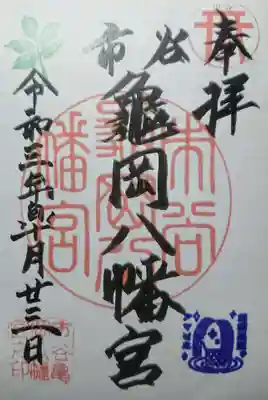 奉拝
市谷
龜岡八幡宮
令和三年十月廿三日
市谷
龜岡八
幡宮
市谷亀